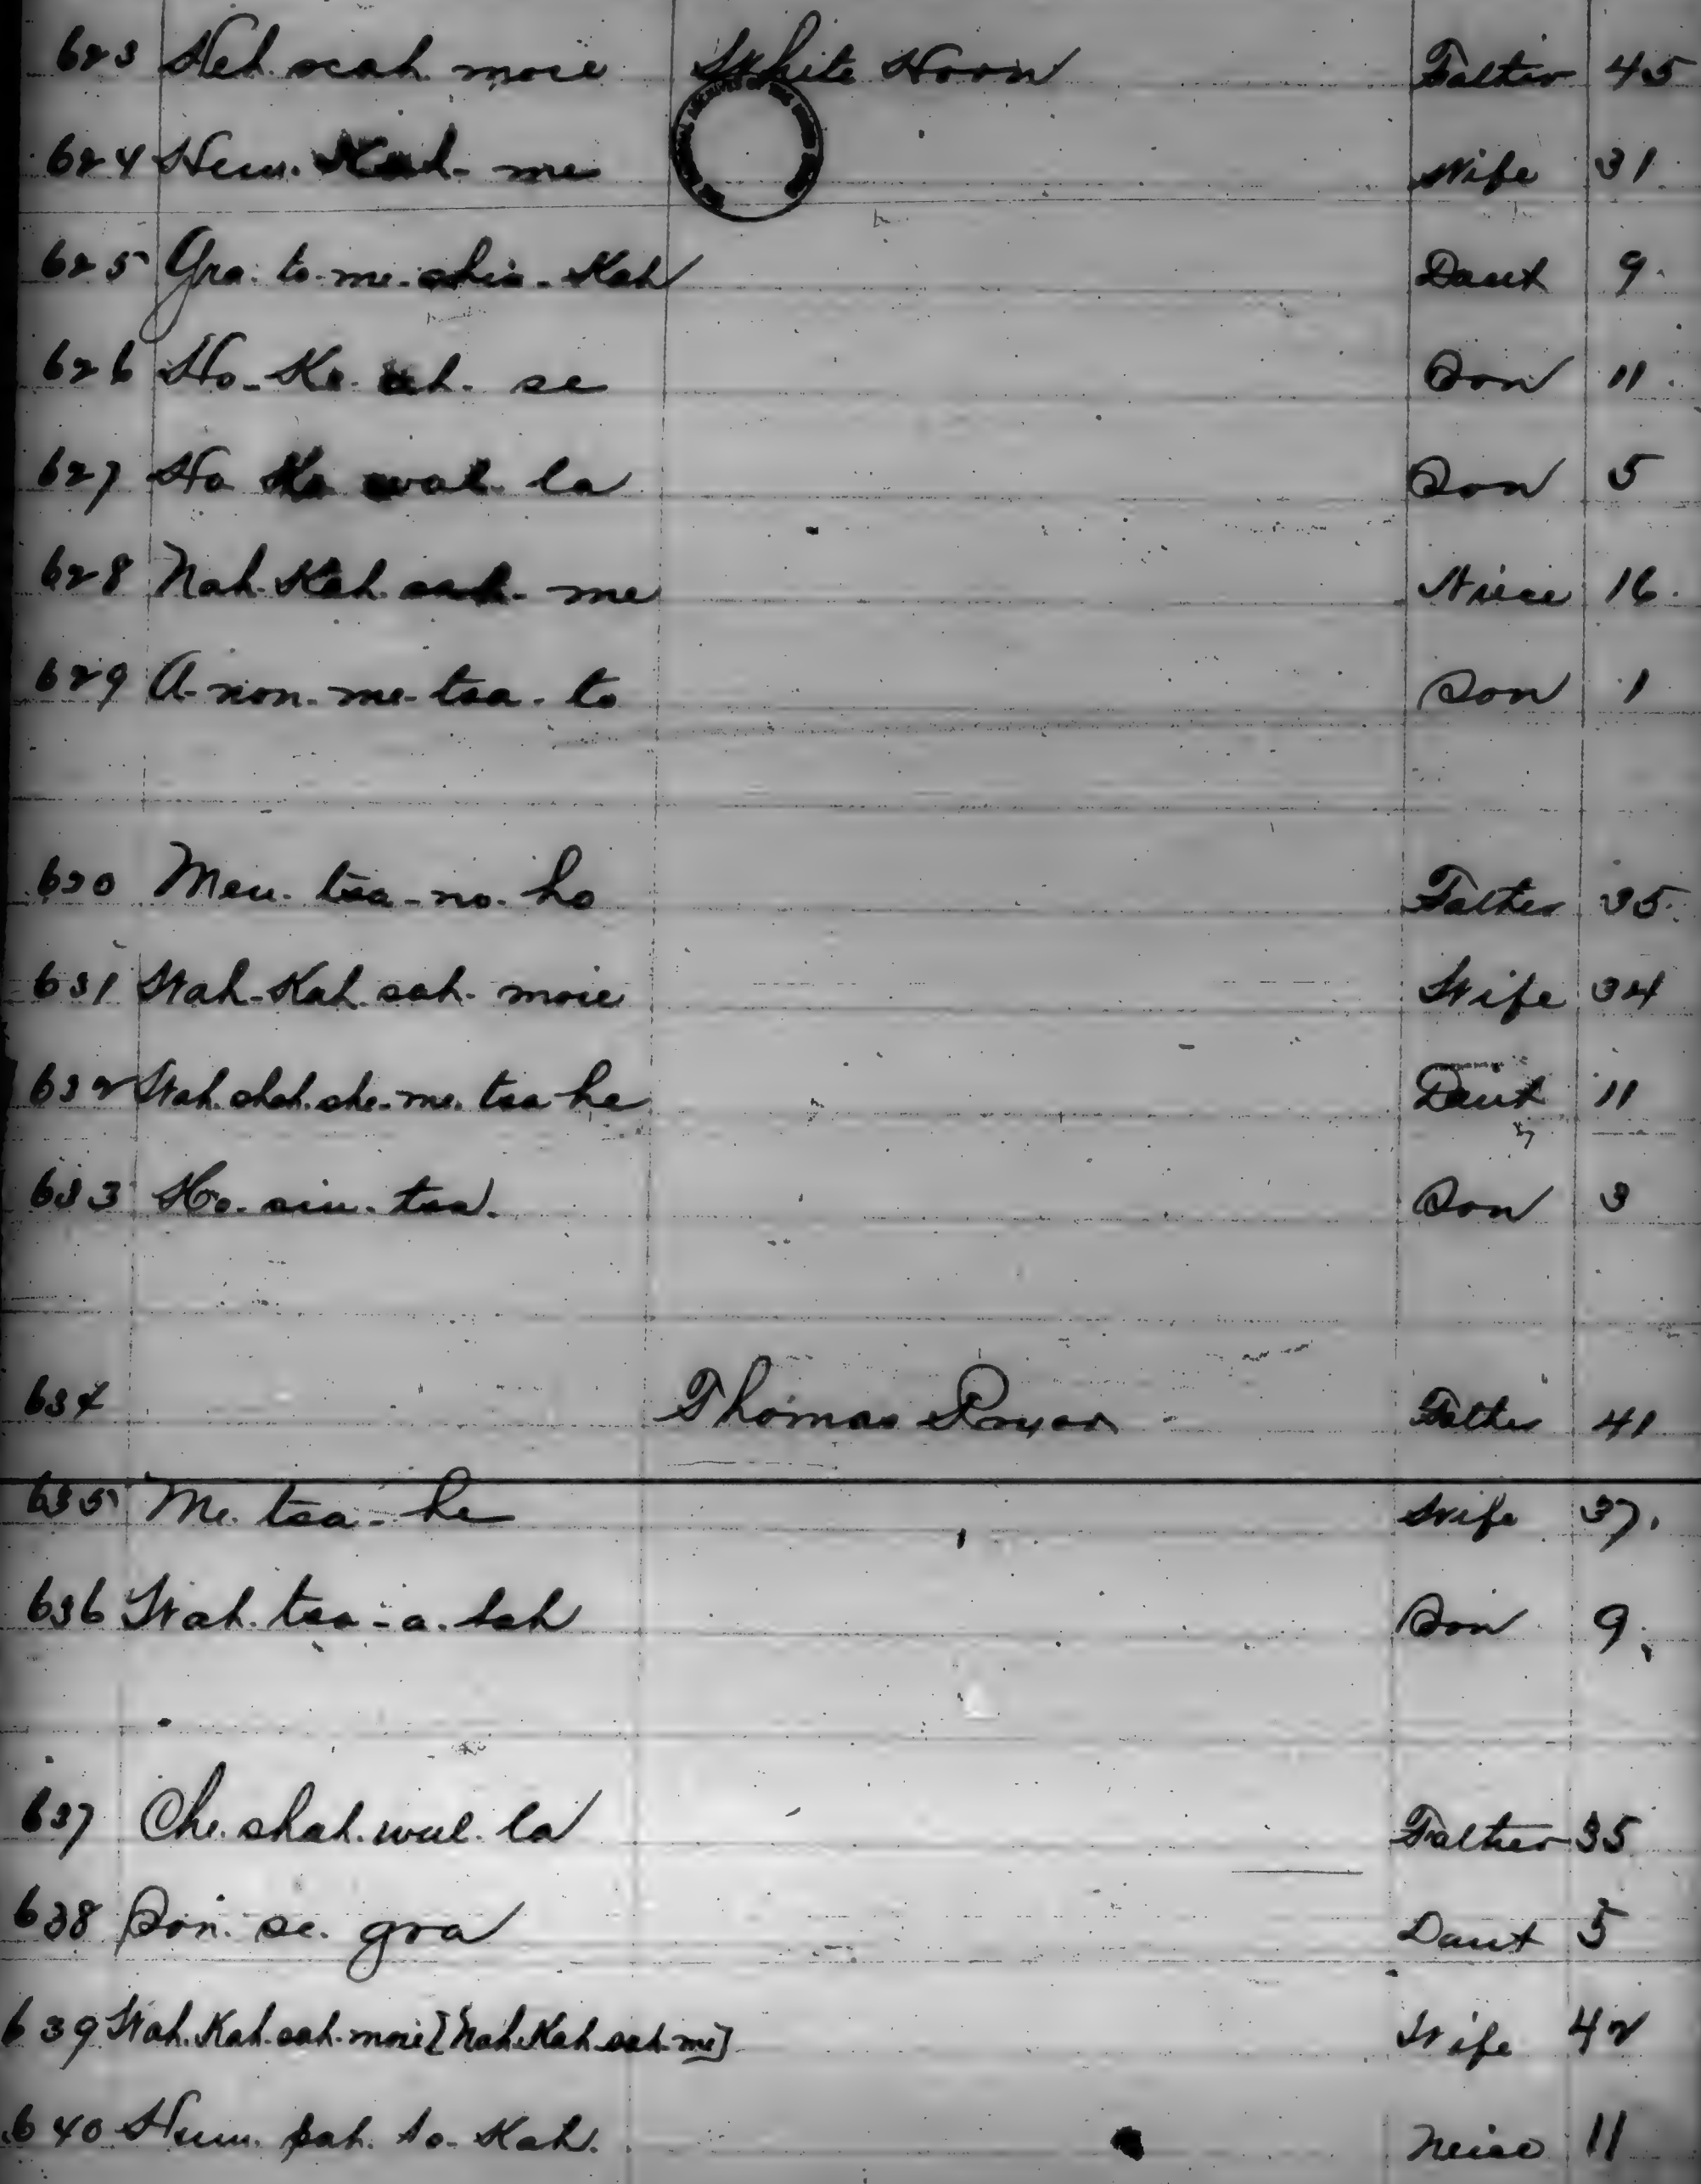 623 Heh. scah moie White Horn Father 45
624 Hum. Kah- me Wife 31
625 Gra. to-me-shin-Kah Daut 9.
626 Ho-Ke-ah-se Son 11.
627 Ho Ke wal la Son 5
628 Nah. Kah sah- me Niece 16.
629 A-non-me-tsa-to Son 1
630 Meu-tsa-no-ho Father 35.
631 Wah-Kah sah- moie Wife 34
632 Wah. shah. she-me. tsa he Daut 11
633 Ho. siu. tsa. Son 3
634 Thomas Pryor Father 41
635 Me. tsa-he Wife 37.
636 Wah. tsa-a. tah Son 9.
637 Che. shah. wal. la Father 35
638 Son. se. gra Daut 5
639 Wah. Kah. sah. moie [Nah. Kah. sah-me] Wife 42
640 Hum. pah. to-Kah. Neice 11